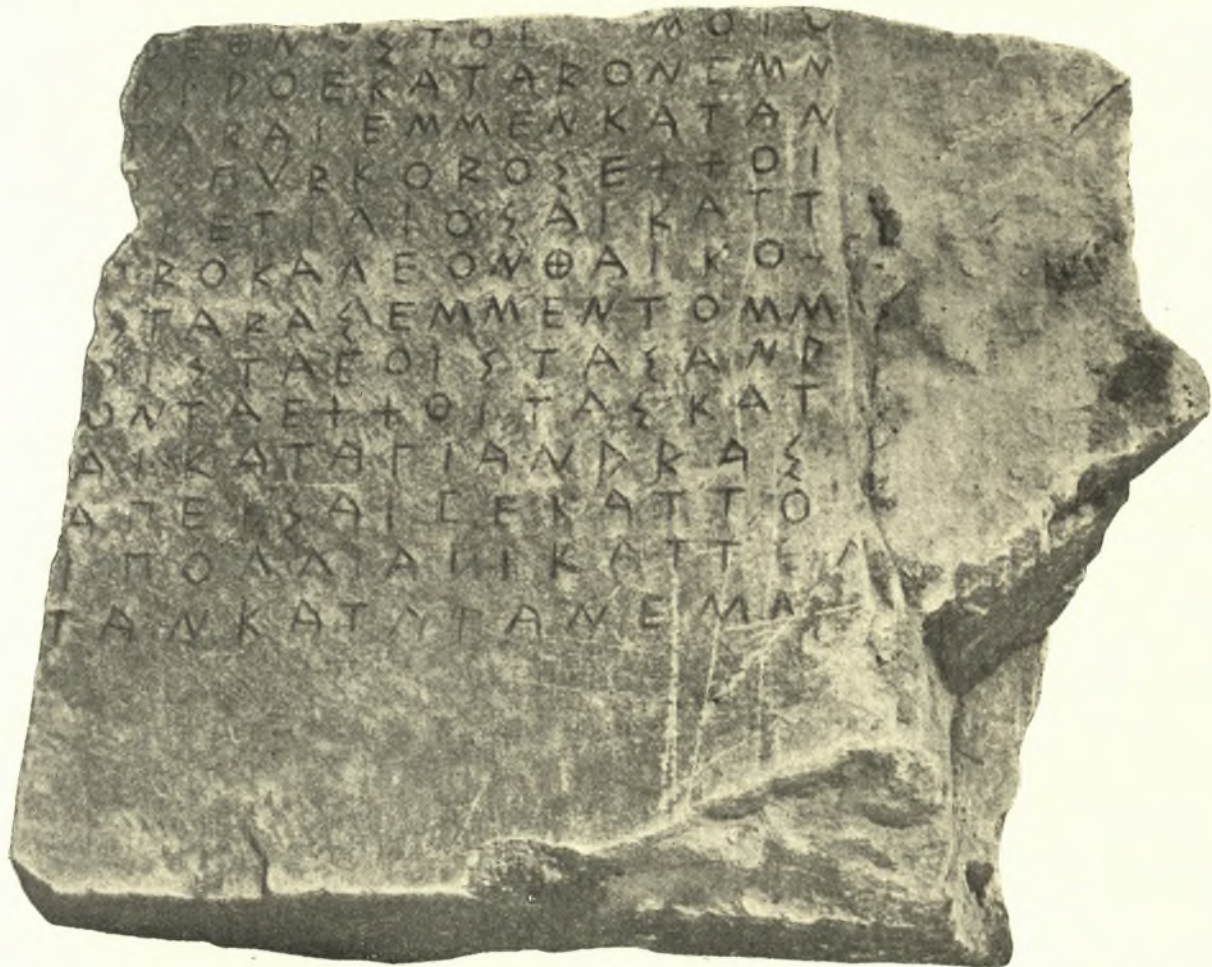 ΕΘΝ ΣΤΟΙ ΜΟΙ
ΡΟΕΚΑΤΑΒΟΝΕΜΝ
ΑΡΑΙΕΜΜΕΝΚΑΤΑΝ
ΠΥΡΚΟΡΟΣΕ++ΟΙ
ΕΤΙΛΙΟΣΑΙΚΑΤΤ
ΡΟΚΑΛΕΟΝΘΑΙΚΟ
ΤΑΡΑΣΕΜΜΕΝΤΟΜΜ
ΙΣΤΑΕΟΙΣΤΑΣΑΝΔ
ΟΝΤΑΕ++ΟΙΤΑΣΚΑΤ
ΑΙΚΑΤΑΠΙΑΝΔΡΑΣ
ΑΠΕΙΣΑΙΓΕΚΑΤΤΟ
ΙΠΟΛΛΙΑΝΙΚΑΤΤΕΛ
ΤΑΝΚΑΤΑΓΑΝΕΜΑ